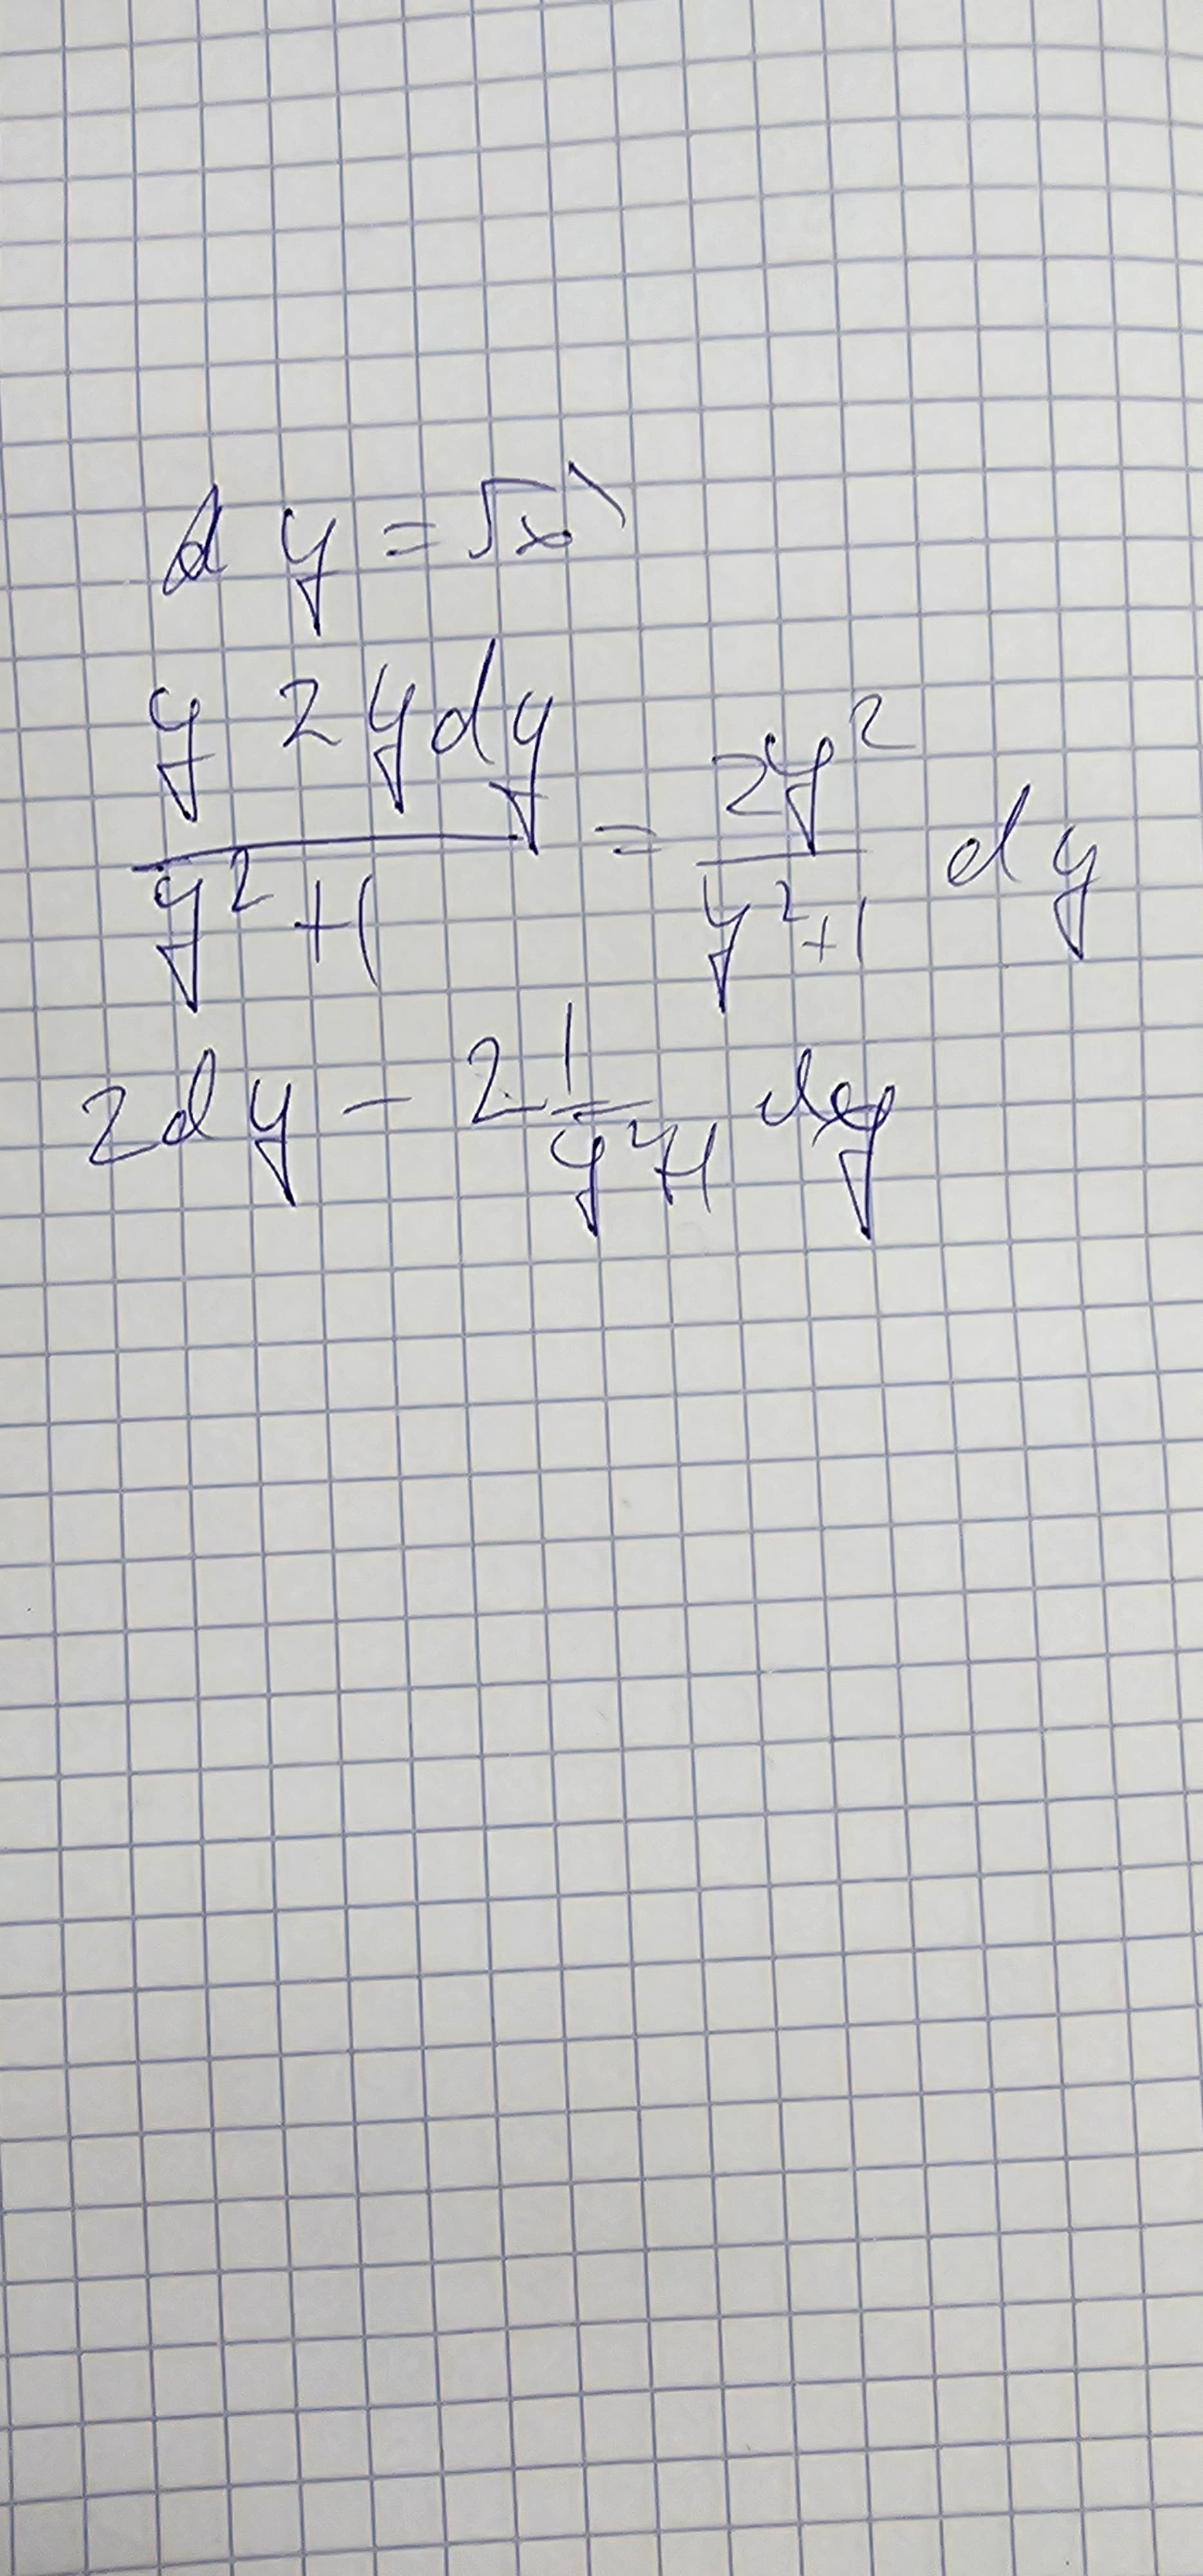 d y = √x
y 2 y dy / y² + 1 = 2y² / y² + 1 dy
2dy - 2 1 / y² + 1 dy